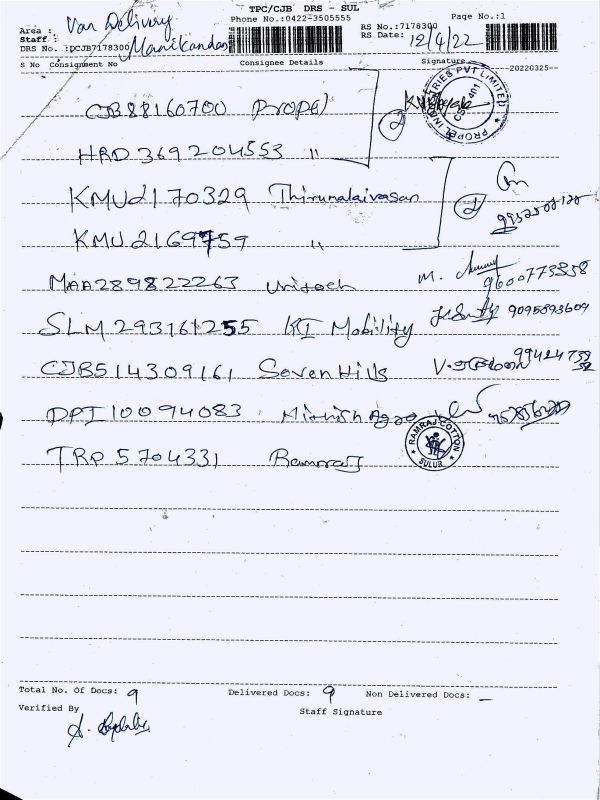 TPC/CJB DRS - SUL
Phone No.:0422-3505555
Page No.:1
Area : Van Delivery
RS No.:7178300
Staff : Manikandan
RS Date: 12/4/22
DRS No. :PCJB7178300
S No Consignment No Consignee Details Signature
20220325--
CJB88160700 Propel
HRD 369204553 "
2
PROPEL INDUSTRIES PVT LIMITED
KMU2170329 Thirumalaivasan
2
KMU2169759 "
MAA289822263 Unitech M. 9600773358
SLM 293161255 KI Mobility 9095893604
CJB514309161 Seven Hills
DPI10094083
TRP 5704331 Ramraj
RAMRAJ COTTON
SULUR
Total No. Of Docs: 9 Delivered Docs: 9 Non Delivered Docs: –
Verified By
Staff Signature